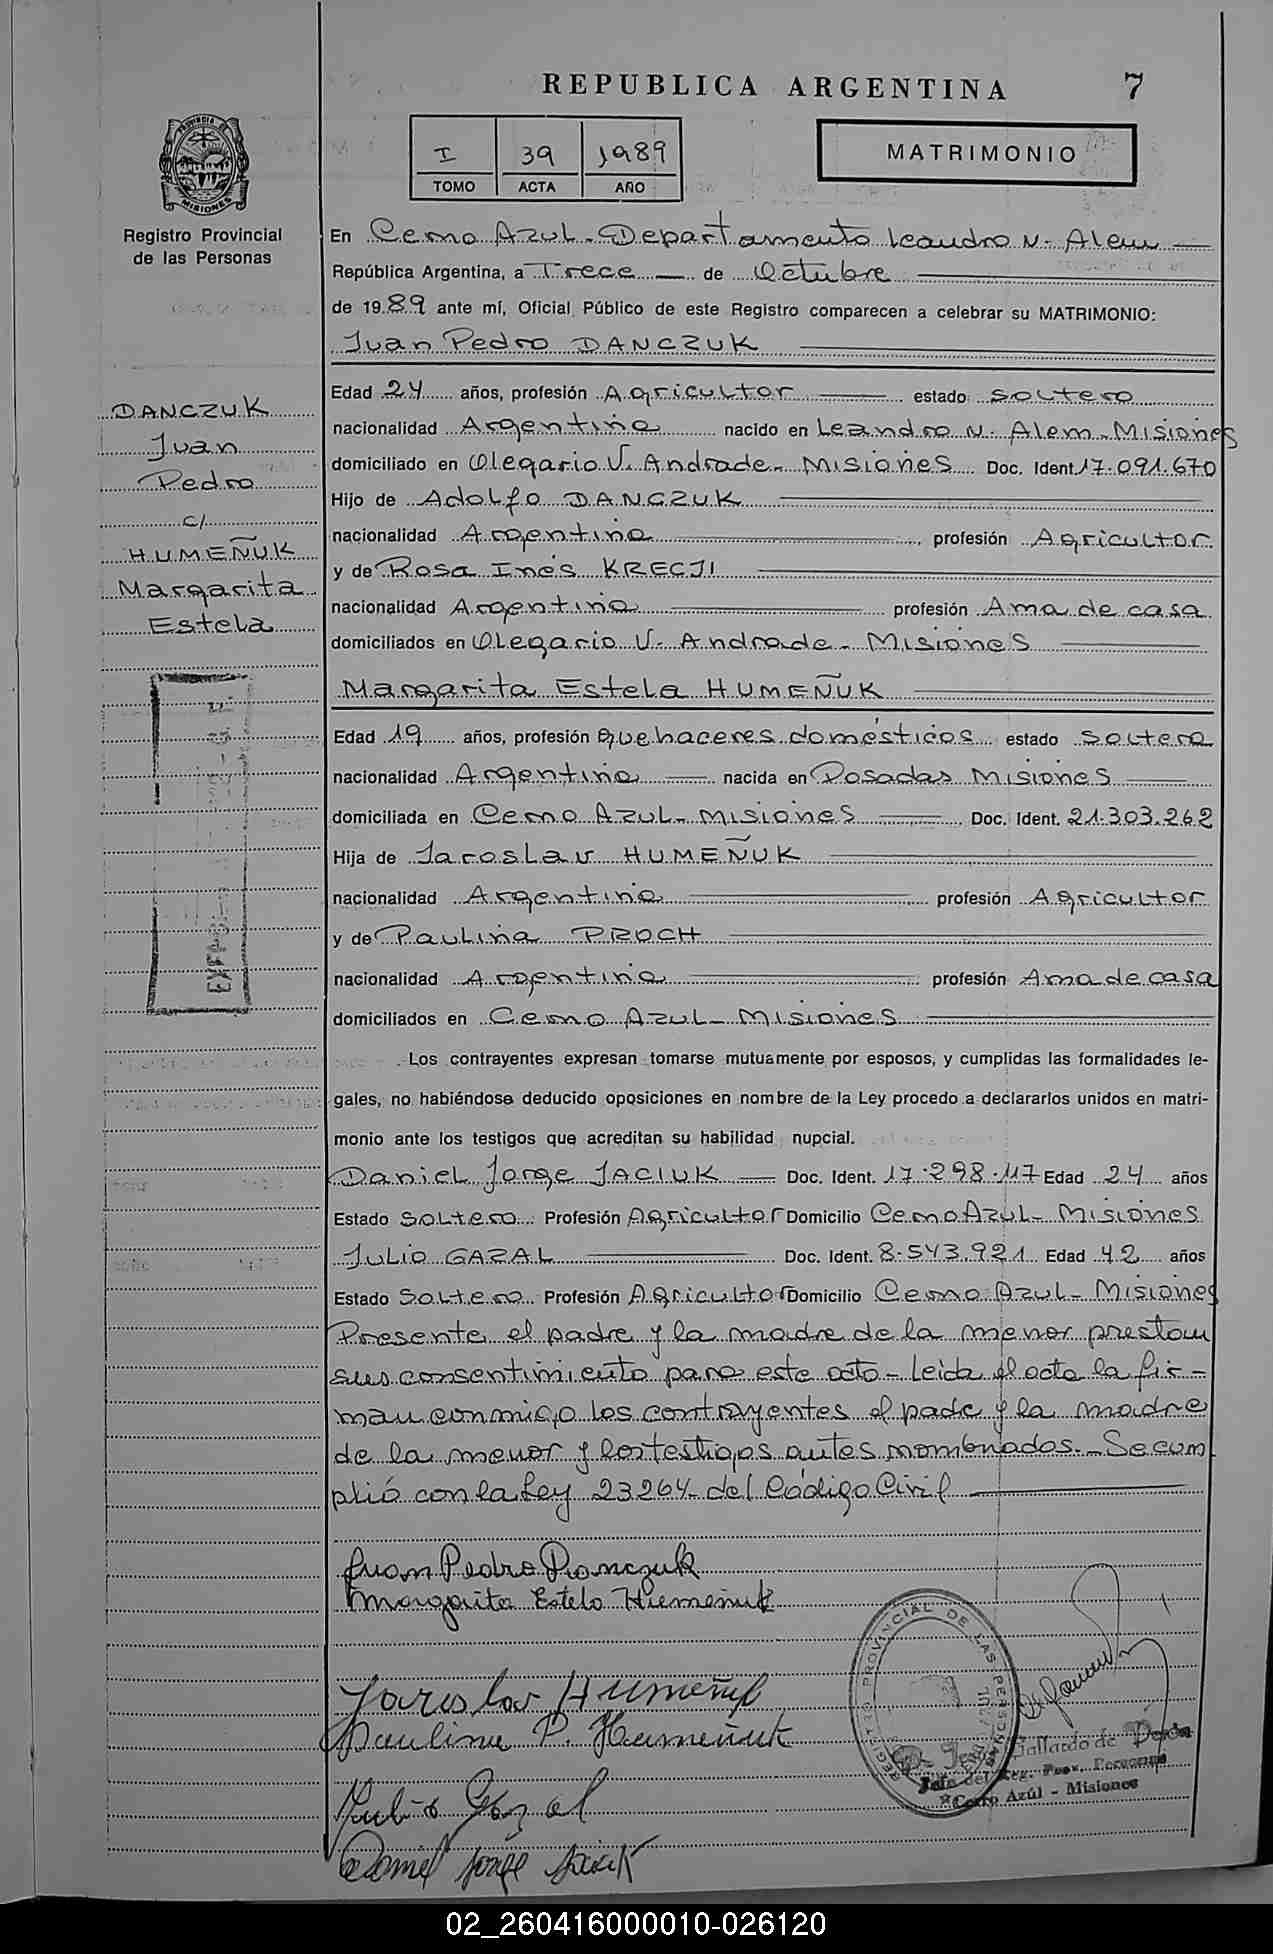 REPUBLICA ARGENTINA 7
I 39 1989
TOMO ACTA AÑO
MATRIMONIO
PROVINCIA DE
MISIONES
Registro Provincial
de las Personas
DANCZUK
Juan
Pedro
c/
HUMEÑUK
Margarita
Estela
En Cerro Azul - Departamento Leandro N. Alem
República Argentina, a Trece de Octubre
de 1989 ante mí, Oficial Público de este Registro comparecen a celebrar su MATRIMONIO:
Juan Pedro DANCZUK
Edad 24 años, profesión Agricultor estado soltero
nacionalidad Argentina nacido en Leandro N. Alem - Misiones
domiciliado en Olegario V. Andrade - Misiones Doc. Ident. 17.091.670
Hijo de Adolfo DANCZUK
nacionalidad Argentina profesión Agricultor
y de Rosa Inés KRECJI
nacionalidad Argentina profesión Ama de casa
domiciliados en Olegario V. Andrade - Misiones
Margarita Estela HUMEÑUK
Edad 19 años, profesión Quehaceres domésticos estado soltera
nacionalidad Argentina nacida en Posadas Misiones
domiciliada en Cerro Azul - Misiones Doc. Ident. 21.303.262
Hija de Jaroslav HUMEÑUK
nacionalidad Argentina profesión Agricultor
y de Paulina PROCH
nacionalidad Argentina profesión Ama de casa
domiciliados en Cerro Azul - Misiones
Los contrayentes expresan tomarse mutuamente por esposos, y cumplidas las formalidades le-
gales, no habiéndose deducido oposiciones en nombre de la Ley procedo a declararlos unidos en matri-
monio ante los testigos que acreditan su habilidad nupcial.
Daniel Jorge JACIUK Doc. Ident. 17.298.117 Edad 24 años
Estado soltero Profesión Agricultor Domicilio Cerro Azul - Misiones
Julio GAZAL Doc. Ident. 8.543.921 Edad 42 años
Estado soltero Profesión Agricultor Domicilio Cerro Azul - Misiones
Presente el padre y la madre de la menor prestan
sus consentimiento para este acto - Leida el acta la fir-
man conmigo los contrayentes el padre y la madre
de la menor y los testigos antes nombrados. - Se cum
plió con la Ley 23264 - del Código Civil
Juan Pedro Danczuk
Margarita Estela Humeñuk
Jaroslav Humeñuk
Paulina P. Humeñuk
Julio Gazal
Daniel Jorge Jaciuk
REGISTRO PROVINCIAL DE LAS PERSONAS
Gallardo de
Jefe del Reg. Prov. Personas
Cerro Azúl - Misiones
02_260416000010-026120